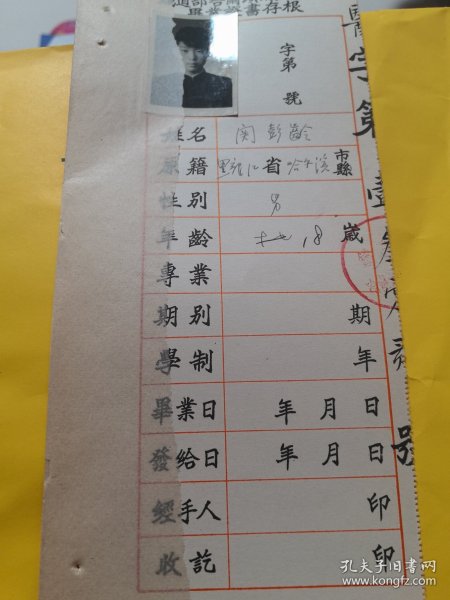 畢業證書存根
字第
號
姓名 関彭齡
原籍 黑龍江省哈尔滨市縣
性別 男
年齡 18歲
專業
期別 期
學制 年
畢業日 年月日
發給日 年月日
經手人 印
收訖 印
醫字第
號
孔夫子旧书网
www.kongfz.com